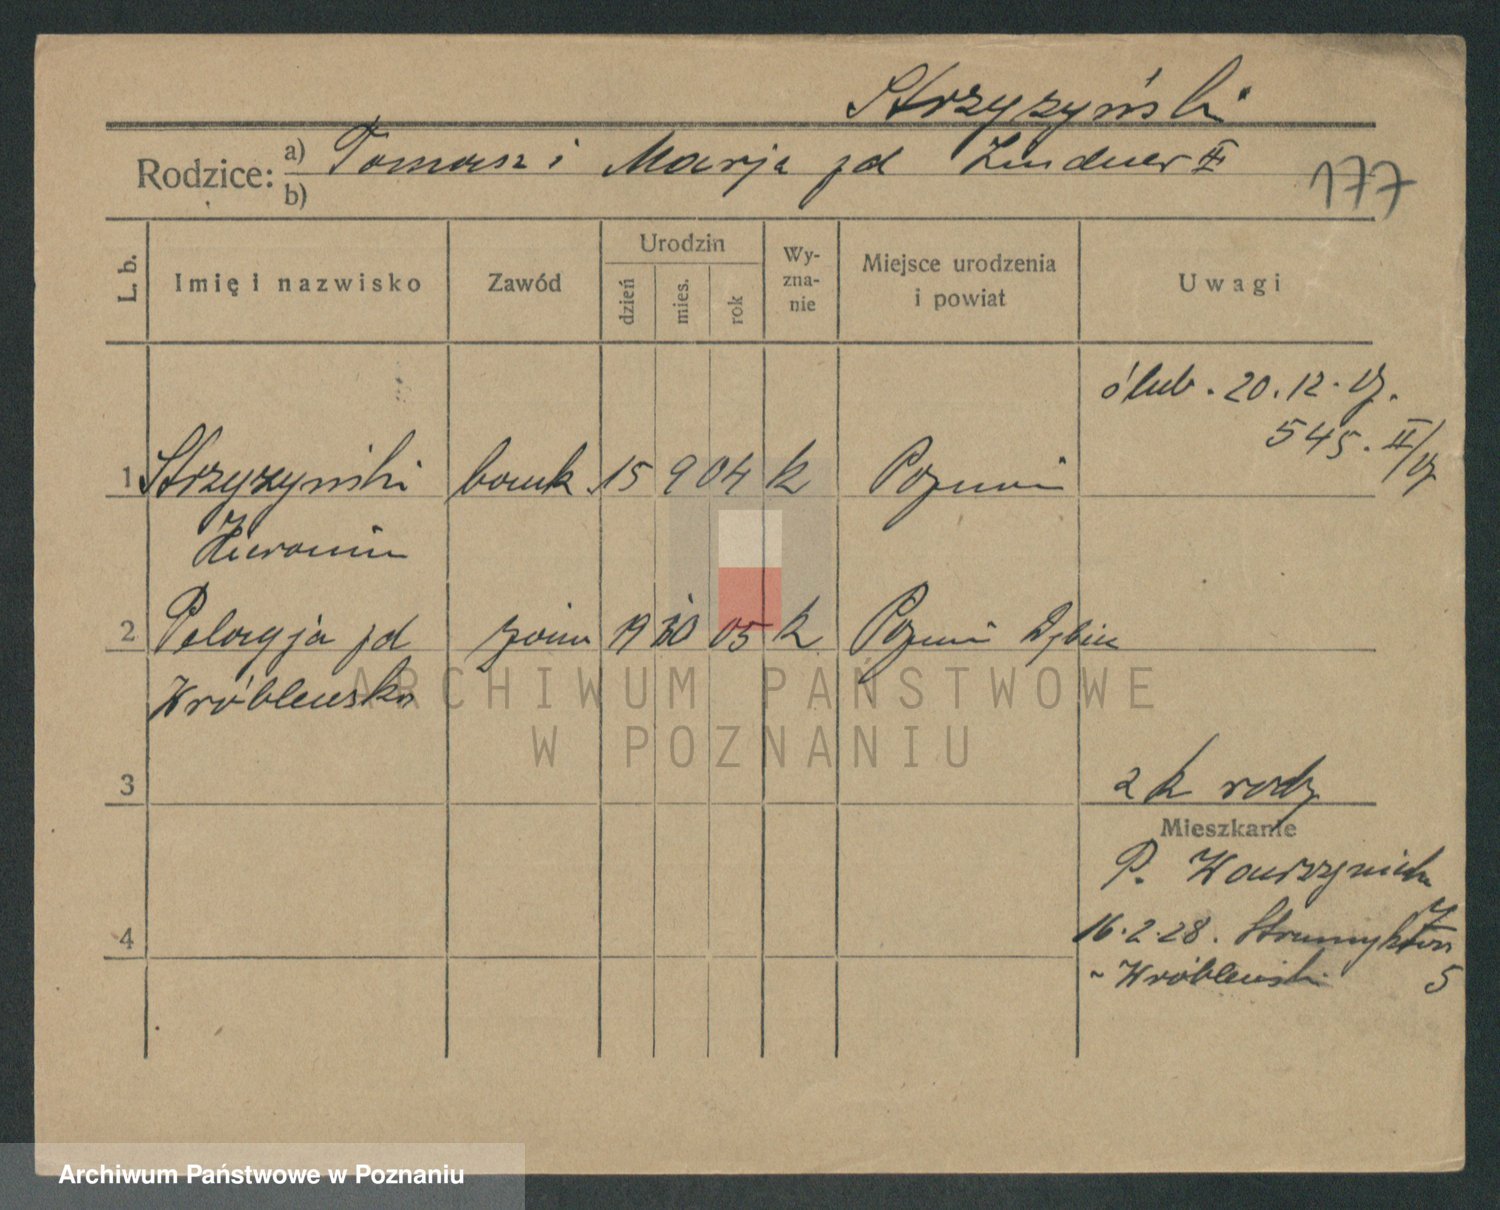 Strzyzyński
Rodzice: a) Tomasz i Marja zd Lindner II
b)
177
L. b.
Imię i nazwisko
Zawód
Urodzin
dzień
mies.
rok
Wy-
zna-
nie
Miejsce urodzenia
i powiat
Uwagi
ślub. 20.12.27.
545. II/27
1 Strzyzyński 15 9 04 k Poznań
Hieronim
2 Pelagja zd żona 19 10 05 k Poznań Dębiec
Wróblewska
ARCHIWUM PAŃSTWOWE
W POZNANIU
3
2 k
Mieszkanie
P.
4
16.2.28. 5
~ Wróblewski
Archiwum Państwowe w Poznaniu